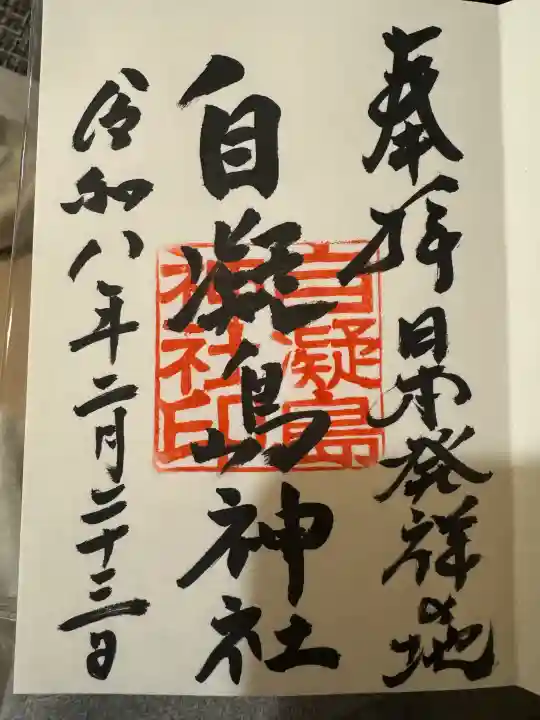 奉拝 日本発祥の地
自凝島神社
自凝島
神社印
令和八年二月二十三日